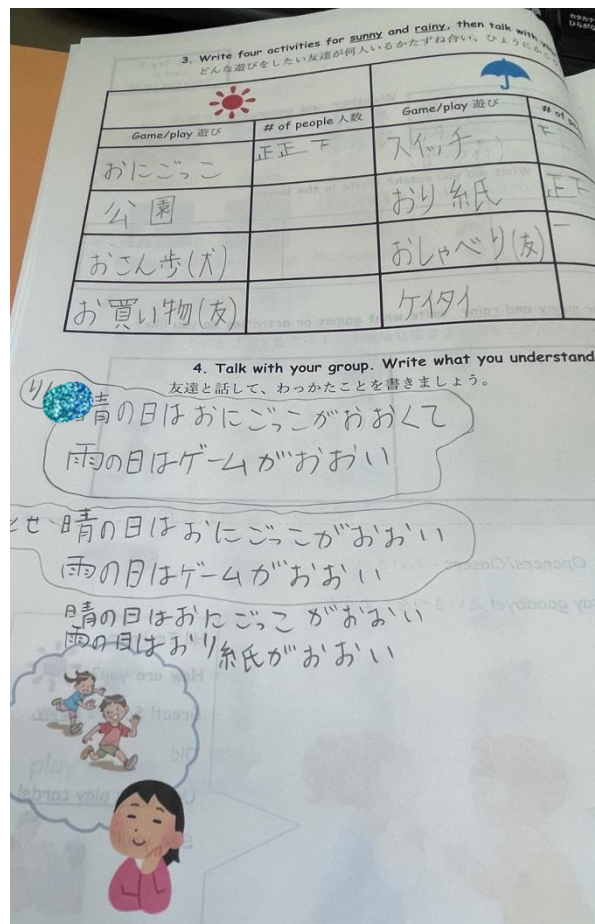 カタカナ
ひらがな
3. Write four activities for sunny and rainy, then talk with you
どんな遊びをしたい友達が何人いるかたずね合い。ひょうにかこう
Game/play 遊び
# of people 人数
Game/play 遊び
# of
おにごっこ
正正下
スイッチ
下
公園
おり紙
正下
おさん歩(犬)
おしゃべり(友)
一
お買い物(友)
ケイタイ
4. Talk with your group. Write what you understand
友達と話して、わっかたことを書きましょう。
晴の日はおにごっこがおおくて
雨の日はゲームがおおい
とせ 晴の日はおにごっこがおおい
雨の日はゲームがおおい
晴の日はおにごっこがおおい
雨の日はおり紙がおおい